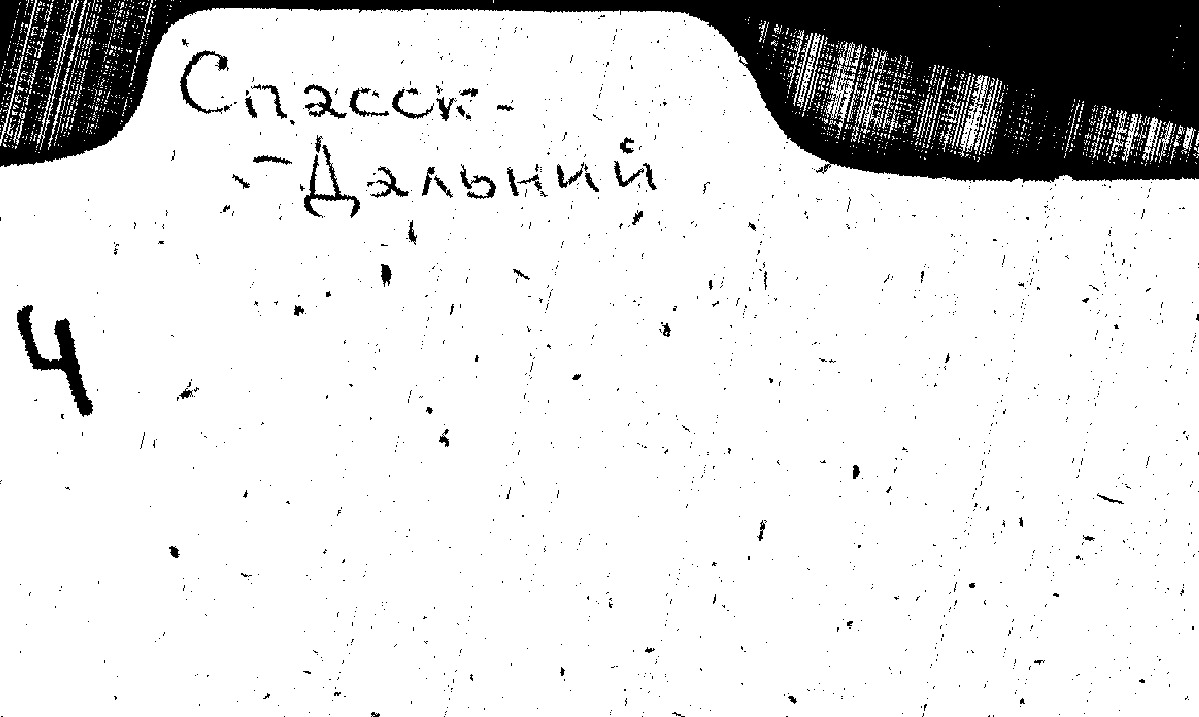 Спасск-
-Дальний
4